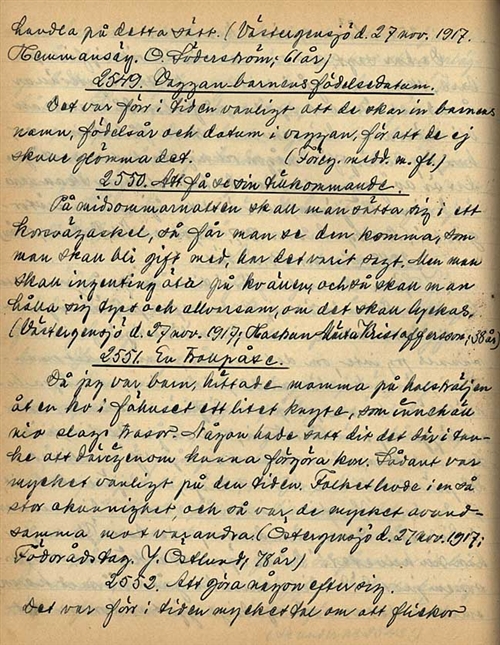 handla på detta sätt. (Västergensjö d. 27 nov. 1917.
Hemmansäg. O. Söderström; 61 år)
2549. Vaggan barnens födelsedatum.
Det var förr i tiden vanligt att de skar in barnens
namn, födelsår och datum i vaggan, för att de ej
skulle glömma det. (Föreg. medd. m. fl.)
2550. Att få se sin tillkommande.
På midsommarnatten skall man sätta sig i ett
korsvägaskel, så får man se den komma, som
man skall bli gift med, har det varit sagt. Men man
skall ingenting äta på kvällen, och så skall man
hålla sig tyst och allvarsam, om det skall lyckas.
(Västergensjö d. 27 nov. 1917; Hustrun Märta Kristoffersson; 38 år)
2551. En trollpåse.
Då jag var barn, hittade mamma på
åt en ko i fähuset ett litet knyte, som innehöll
nio slags trasor. Någon hade satt dit det där i tan-
ke att därigenom kunna förgöra kon. Sådant var
mycket vanligt på den tiden. Folket levde i en så
stor okunnighet, och så var de mycket avund-
samma mot varandra. (Östergensjö d. 27 nov. 1917;
Födorådstag. J. Östlund; 78 år)
2552. Att göra någon efter sig.
Det var förr i tiden mycket tal om att flickor